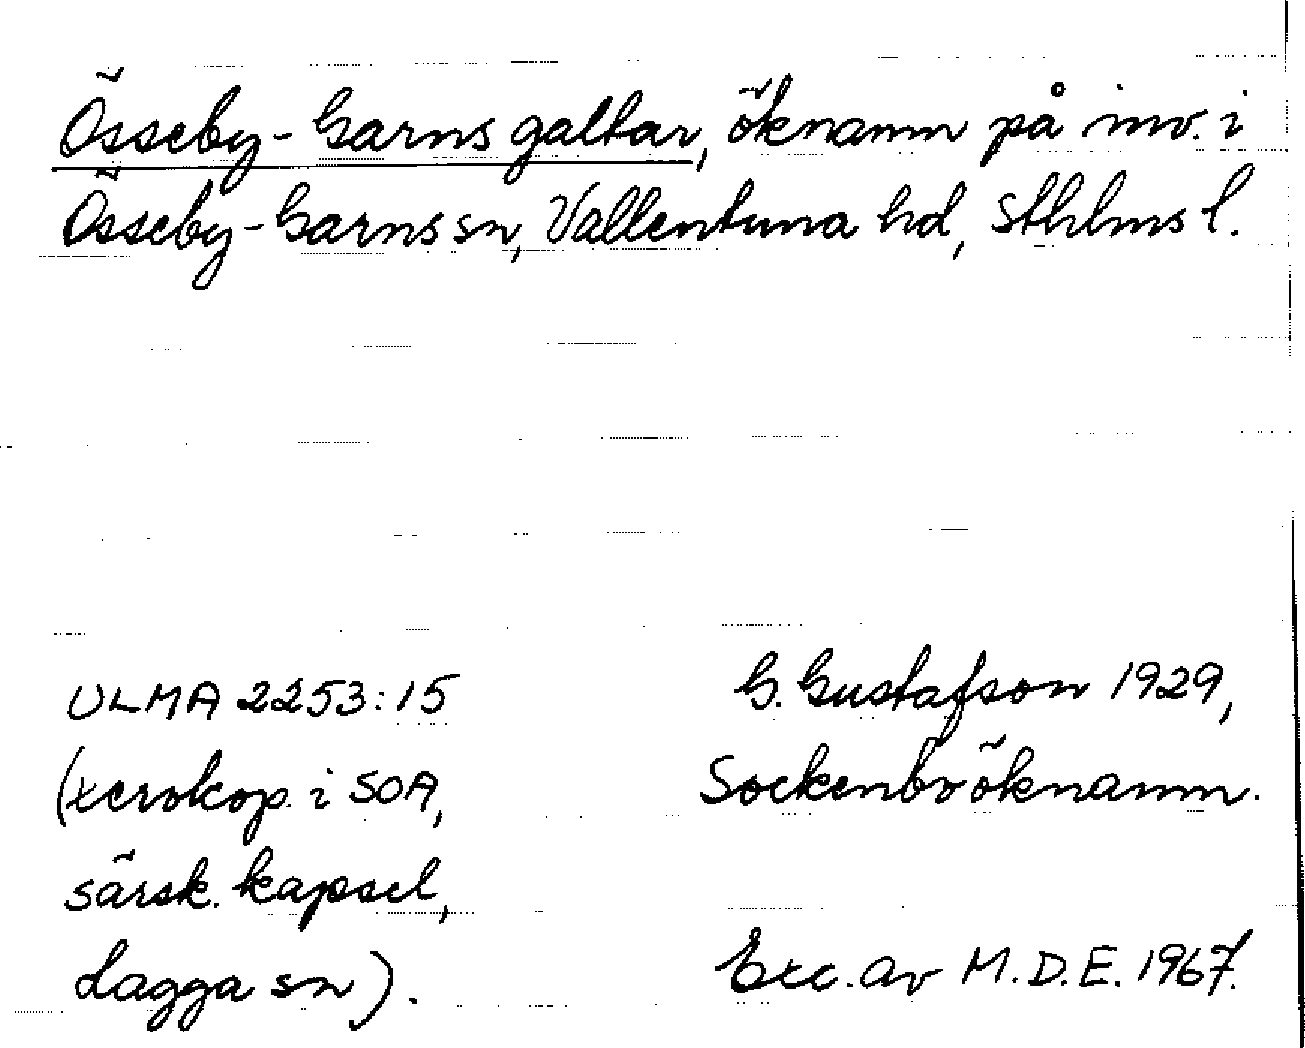 Össeby-Garns galtar, öknamn på inv. i
Össeby-Garns sn, Vallentuna hd, Sthlms l.
ULMA 2253:15
(xerokop. i SOA,
särsk. kapsel,
Lagga sn).
G. Gustafson 1929,
Sockenboöknamn.
Exc. av M.D.E. 1967.